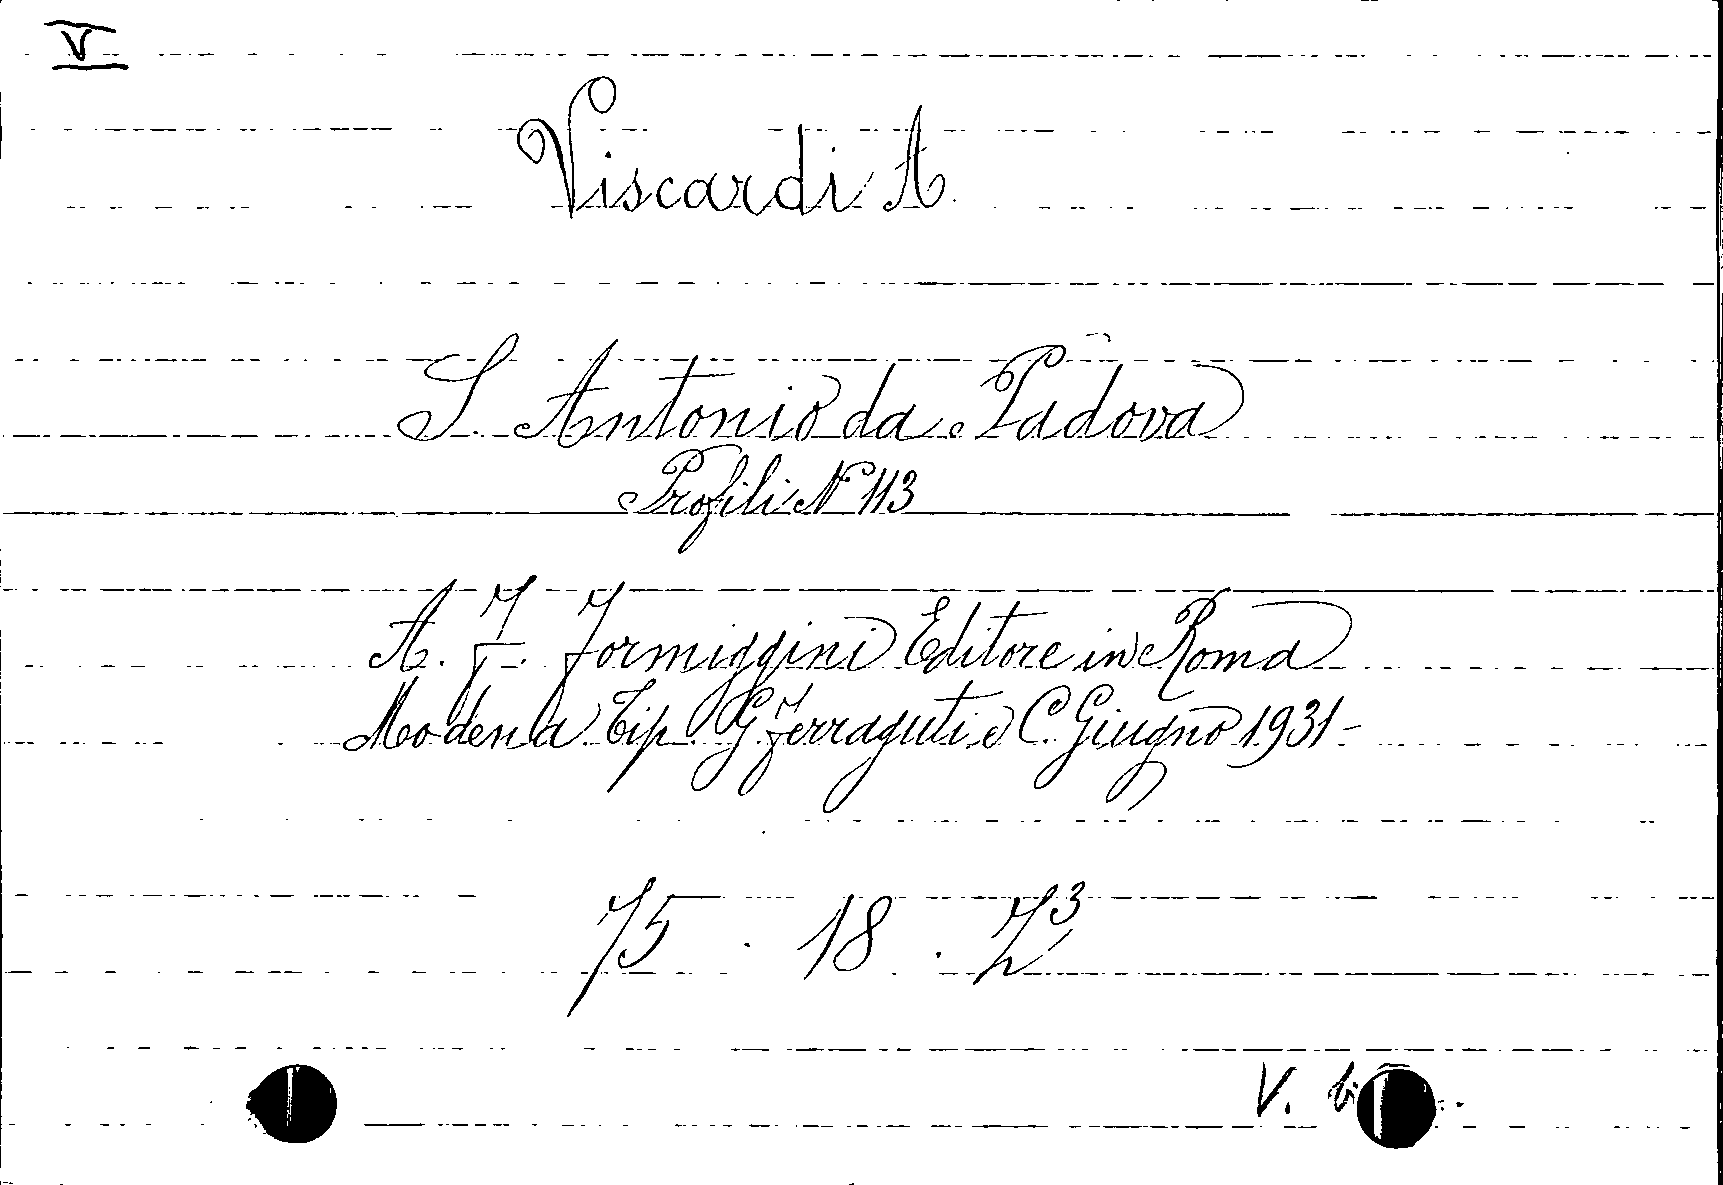 V
Viscardi A.
S. Antonio da Padova
Profili N° 113
A. F. Formiggini Editore in Roma
Modena Tip. G. Ferraguti e C. Giugno 1931 -
75 . 18 . Z³
V.